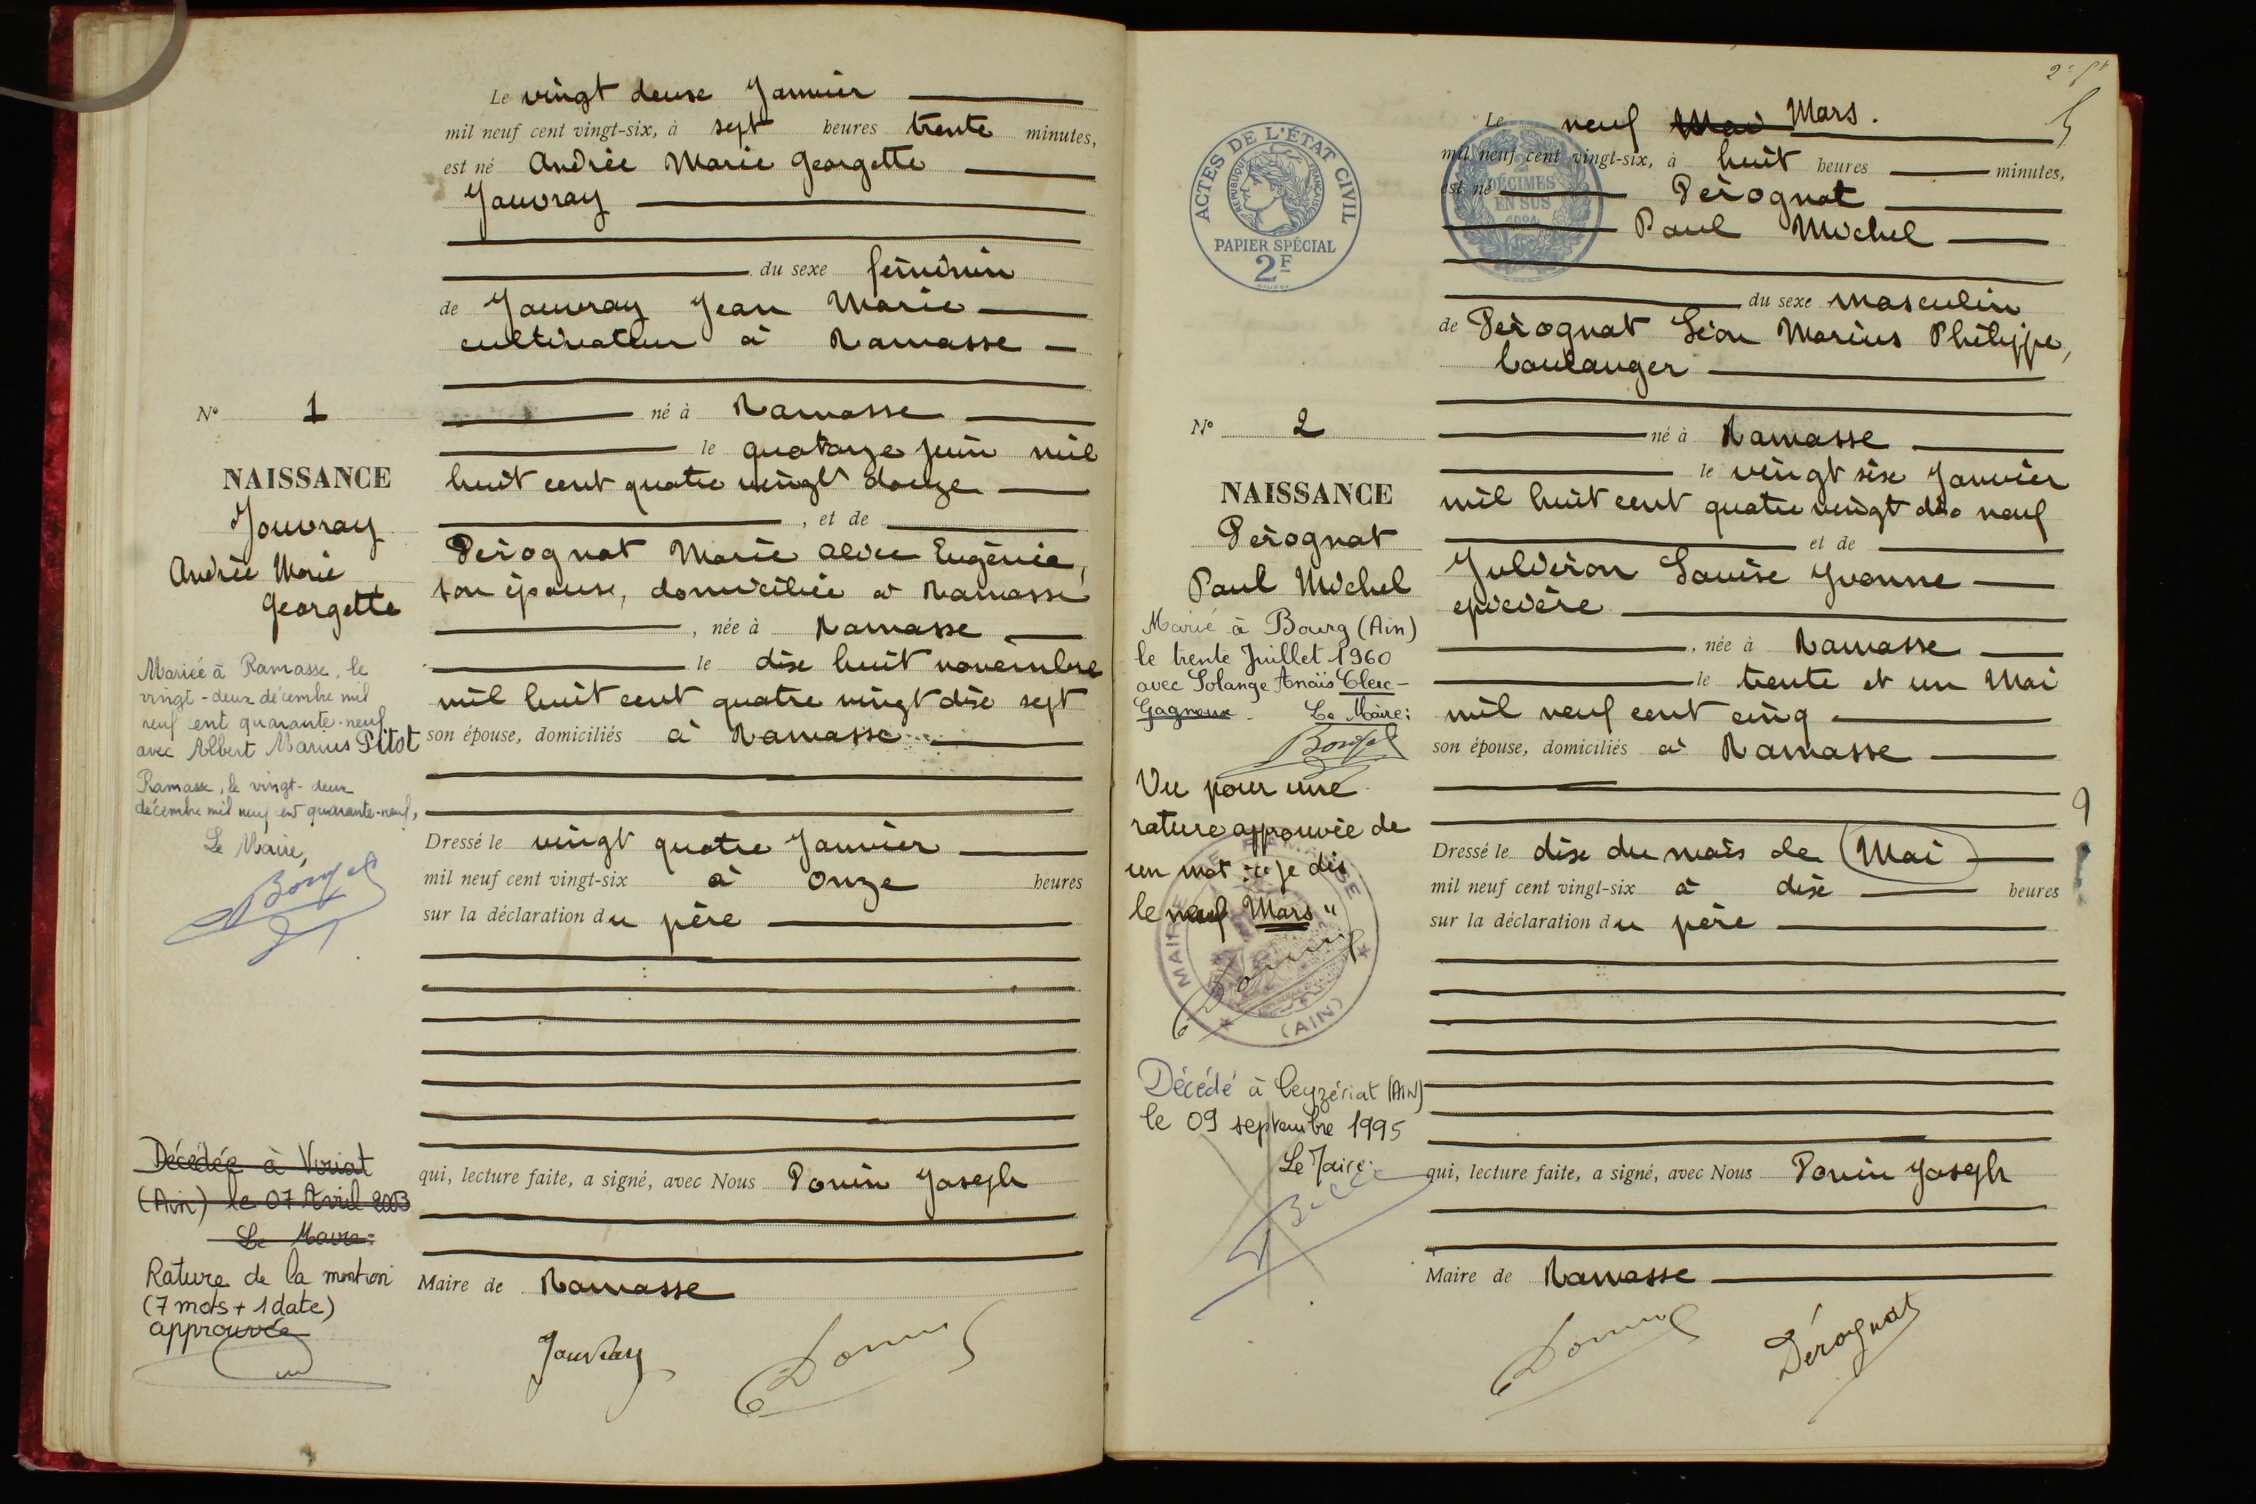 Le vingt deux Janvier
mil neuf cent vingt-six, à sept heures trente minutes,
est né Andrée Marie Georgette
Jouvray
du sexe féminin
de Jouvray Jean Marie
cultivateur à Ramasse
né à Ramasse
le quatorze juin mil
huit cent quatre vingt douze
, et de
Pérognat Marie Alice Eugénie,
son épouse, domiciliée à Ramasse
, née à Ramasse
le dix huit novembre
mil huit cent quatre vingt dix sept
son épouse, domiciliés à Ramasse
Dressé le vingt quatre Janvier
mil neuf cent vingt-six à onze heures
sur la déclaration du père
qui, lecture faite, a signé, avec Nous Ponin Joseph
Maire de Ramasse
Jouvray
N° 1
NAISSANCE
Jouvray
Andrée Marie
Georgette
Mariée à Ramasse, le
vingt-deux décembre mil
neuf cent quarante-neuf
avec Albert Marius Pitot
Ramasse, le vingt-deux
décembre mil neuf cent quarante-neuf,
Le Maire,
Décédée à Viriat
(Ain) le 07 Avril 2003
Le Maire:
Rature de la mention
(7 mots + 1 date)
approuvée
ACTES DE L'ÉTAT CIVIL
RÉPUBLIQUE FRANÇAISE
PAPIER SPÉCIAL
2F
2
DÉCIMES
EN SUS
1924
Le neuf Mai Mars.
mil neuf cent vingt-six, à huit heures minutes,
est né Pérognat
Paul Michel
du sexe masculin
de Pérognat Léon Marius Philippe,
boulanger
né à Ramasse
le vingt six Janvier
mil huit cent quatre vingt dix neuf
et de
Juldéron Louise Yvonne
épicière
, née à Ramasse
le trente et un Mai
mil neuf cent cinq
son épouse, domiciliés à Ramasse
Dressé le dix du mois de Mai
mil neuf cent vingt-six à dix heures
sur la déclaration du père
qui, lecture faite, a signé, avec Nous Ponin Joseph
Maire de Ramasse
Pérognat
N° 2
NAISSANCE
Pérognat
Paul Michel
Marié à Bourg (Ain)
le trente Juillet 1960
avec Solange Anaïs Clerc-
Gagneux. Le Maire:
Vu pour une
rature approuvée de
un mot : "je dis
le neuf Mars"
MAIRIE DE RAMASSE
(AIN)
Décédé à Ceyzériat (AIN)
le 09 septembre 1995
Le Maire: